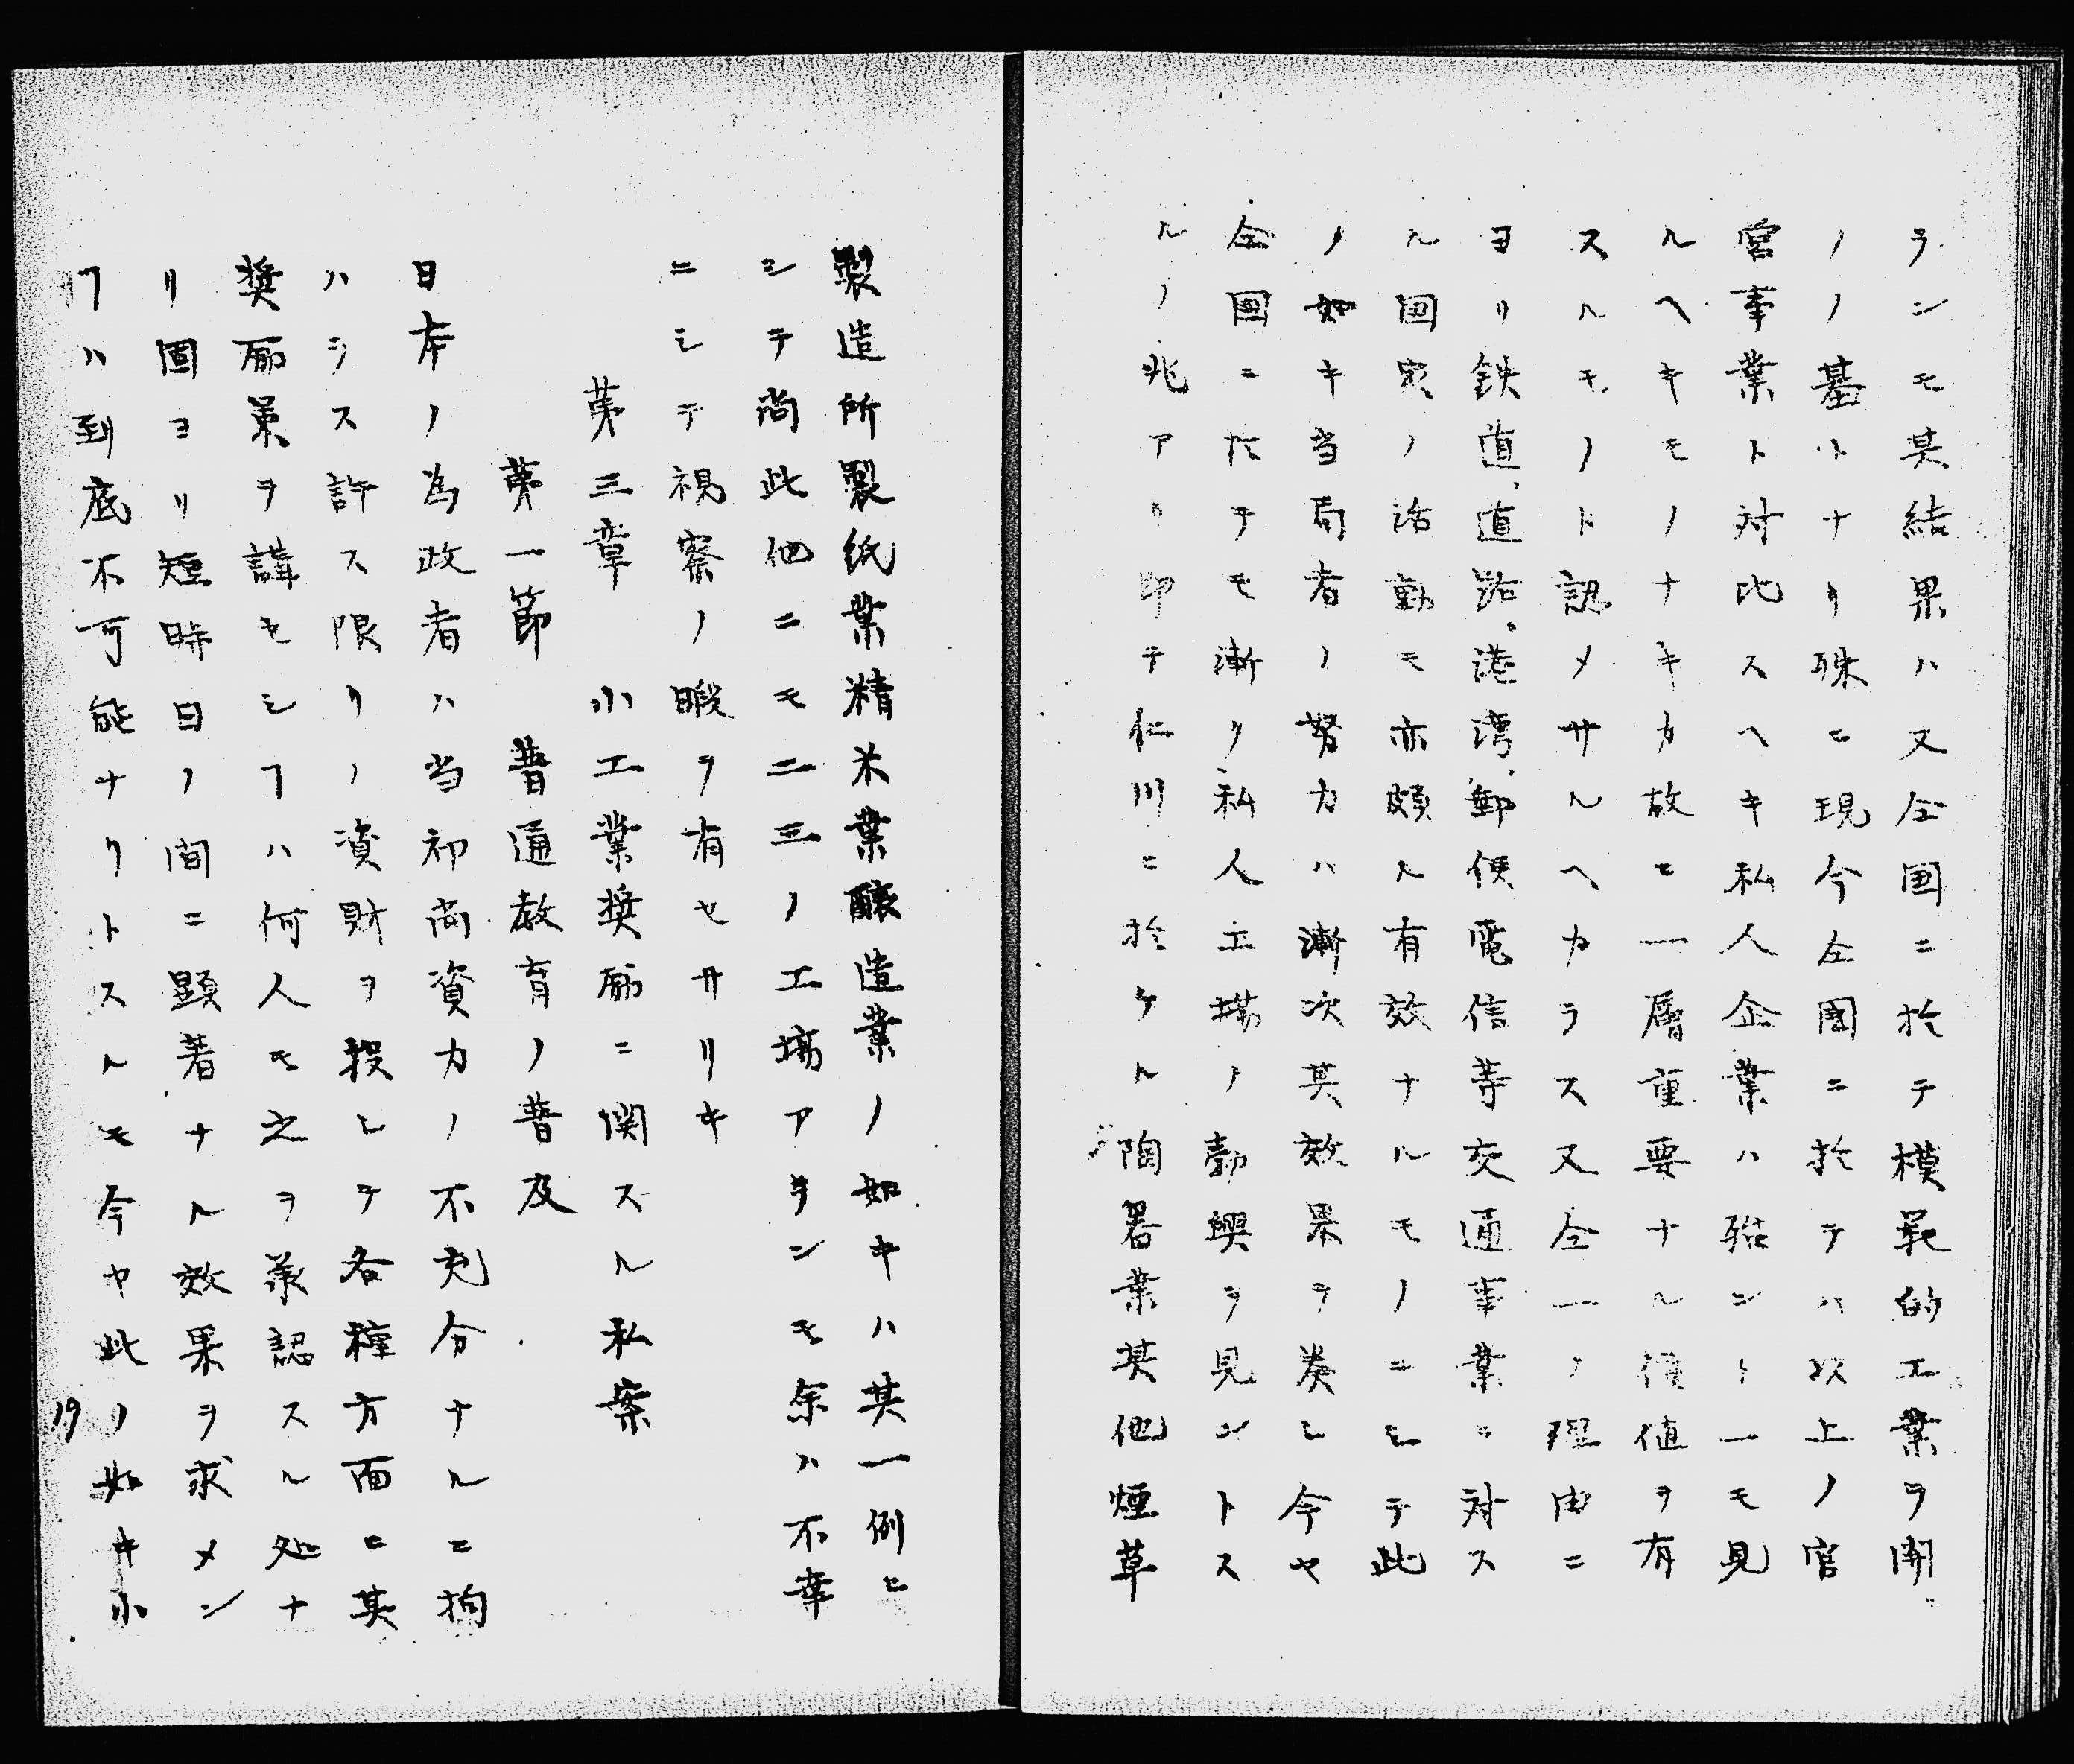 ランモ其結果ハ又仝国ニ於テ模範的工業ヲ開
ノノ基トナリ殊ニ現今仝國ニ於テハ以上ノ官
営事業ト対比スヘキ私人企業ハ殆ント一モ見
ルヘキモノナキカ故ニ一層重要ナル価値ヲ有
スルモノト認メサルヘカラス又仝一ノ理由ニ
ヨリ鉄道、道路、港湾、郵便電信等交通事業ニ対ス
ル国家ノ活動モ亦頗ル有效ナルモノニシテ此
ノ如キ当局者ノ努力ハ漸次其效果ヲ奏シ今ヤ
仝国ニ於テモ漸ク私人工場ノ勃興ヲ見ントス
ルノ兆アリ即チ仁川ニ於ケル陶器業其他煙草
製造所製紙業精米業醸造業ノ如キハ其一例ニ
シテ尚此他ニモ二三ノ工場アランモ余ハ不幸
ニシテ視察ノ暇ヲ有セサリキ
第三章　小工業奨励ニ関スル私案
第一節　普通教育ノ普及
日本ノ為政者ハ当初尚資力ノ不充分ナルニ拘
ハラス許ス限リノ資財ヲ投シテ各種方面ニ其
奨励策ヲ講セシヿハ何人モ之ヲ承認スル処ナ
リ固ヨリ短時日ノ間ニ顕著ナル效果ヲ求メン
ヿハ到底不可能ナリトスルモ今ヤ此ノ如キ小
19